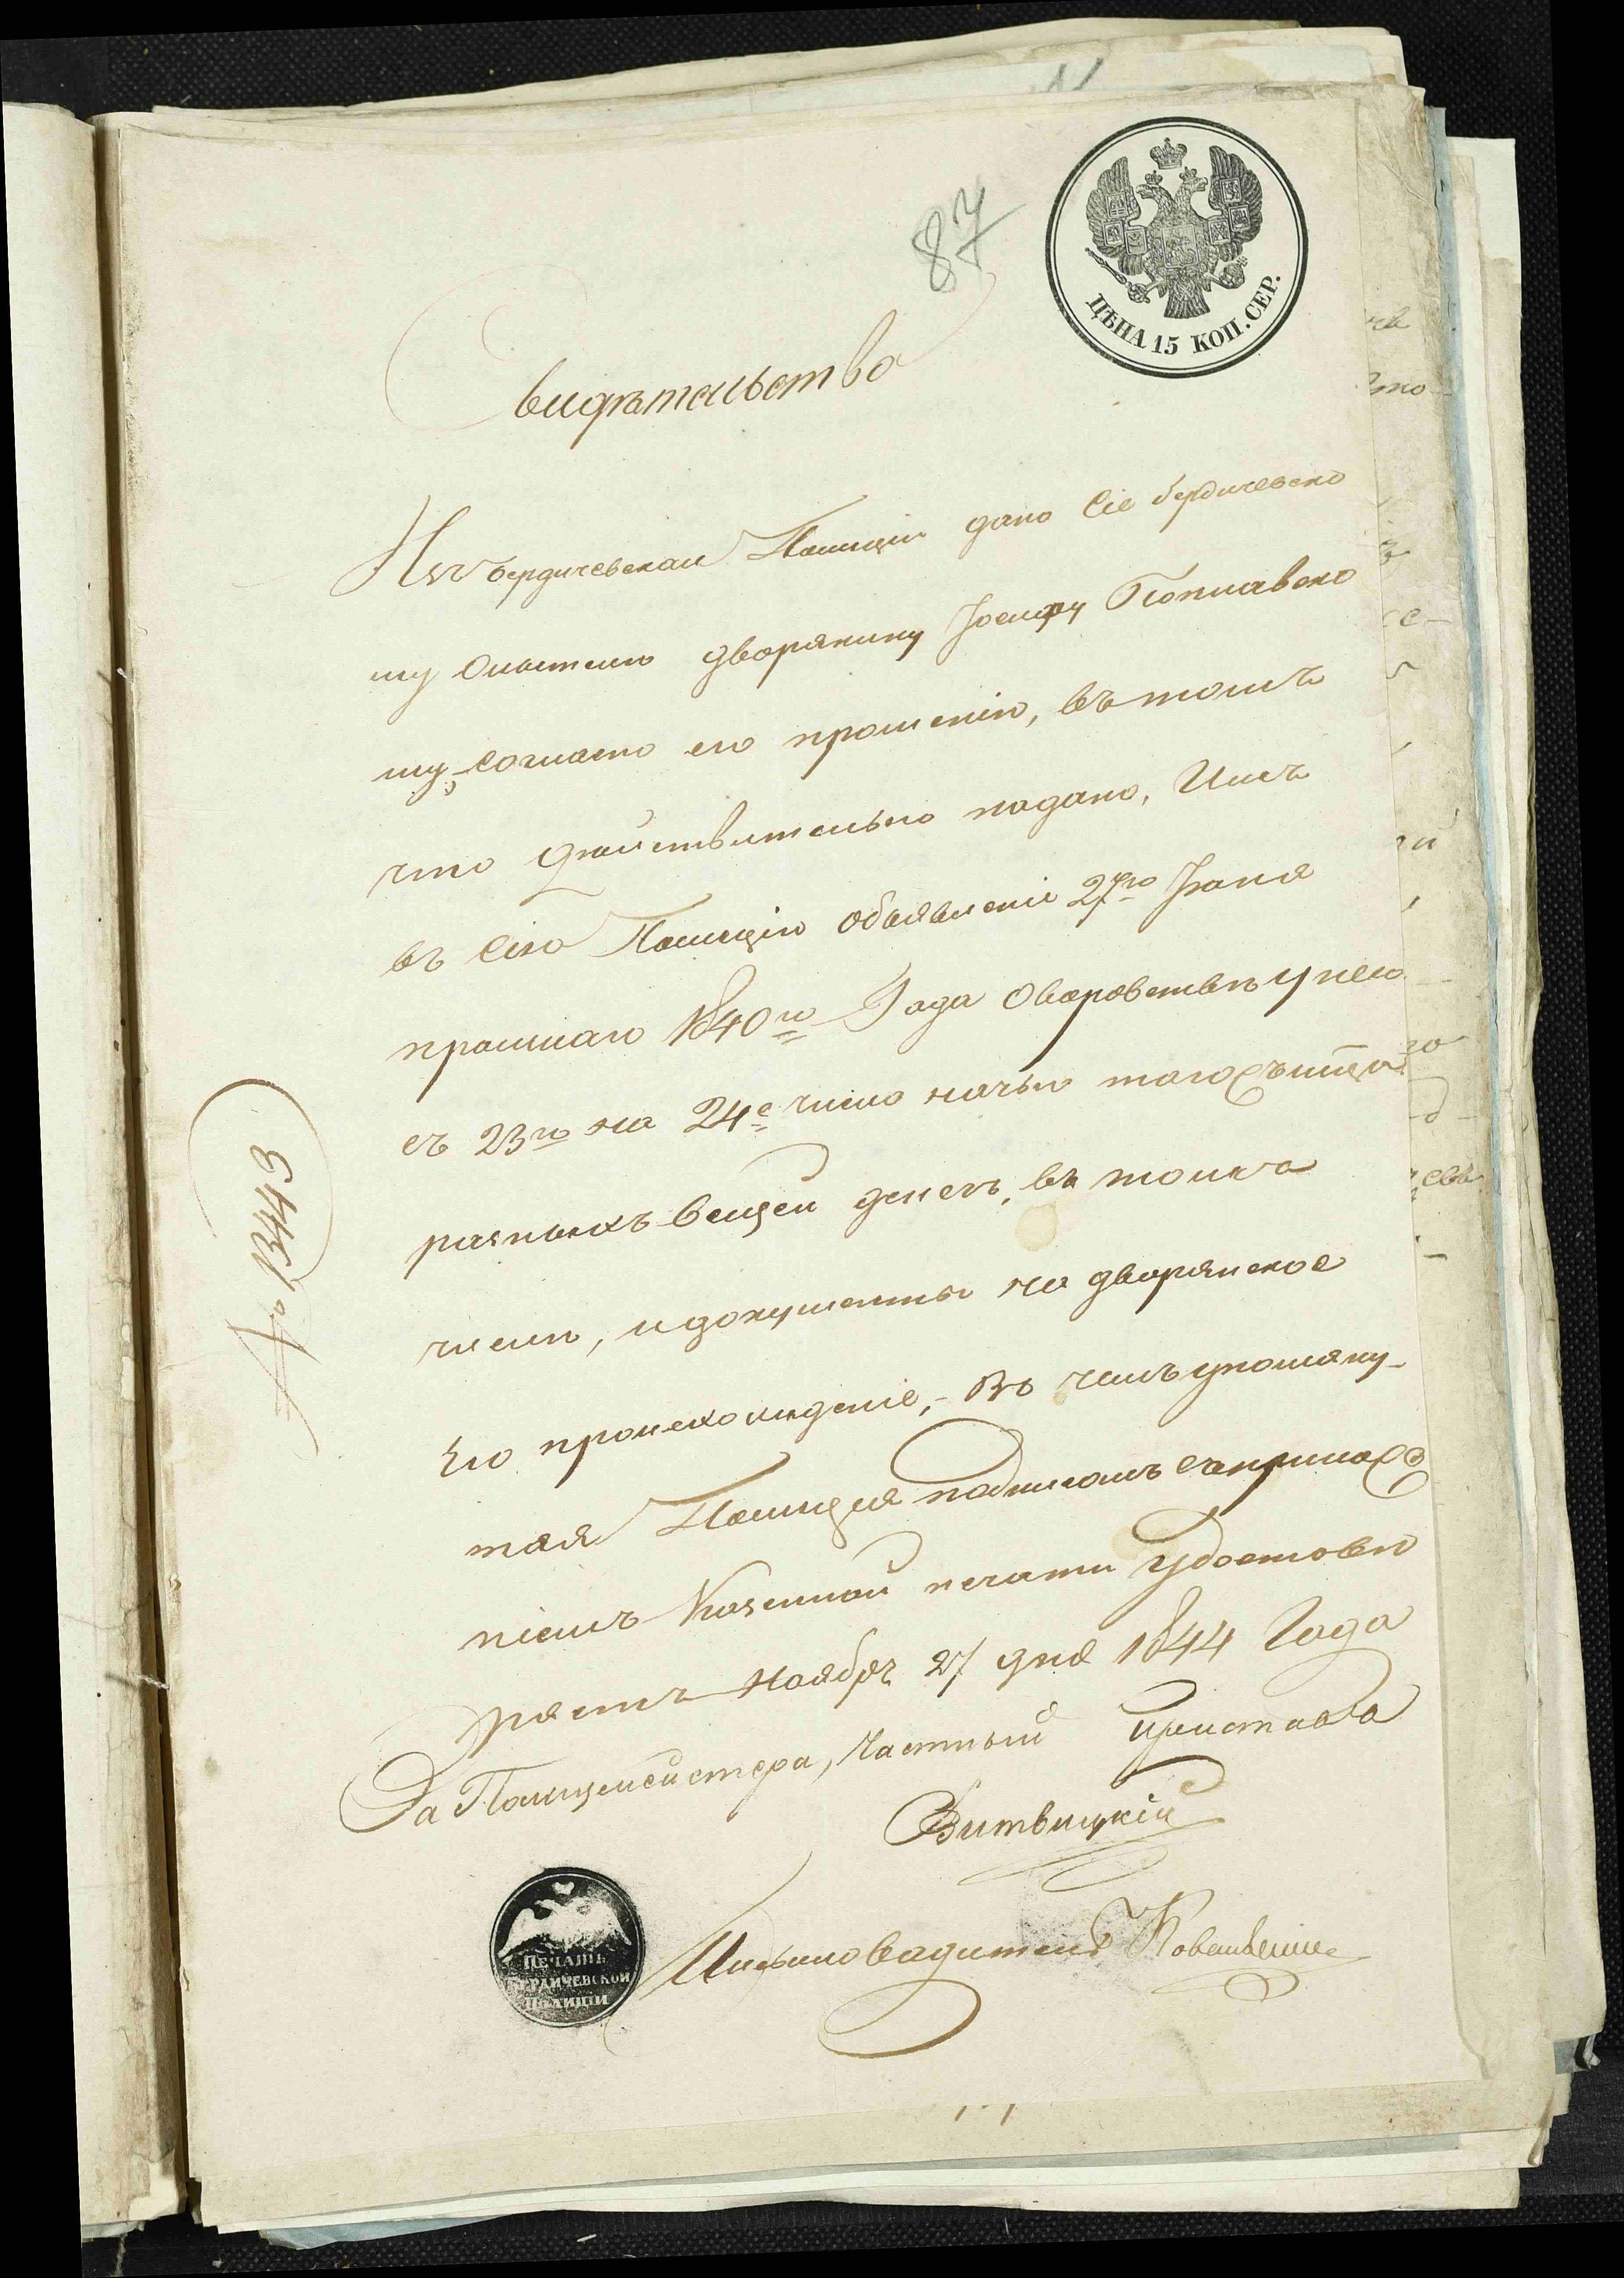 87
ЦѢНА 15 КОП. СЕР.
Свидѣтельство
Изъ бердичевскаи Полиціи дано Сіе бердичевско
му жителю дворянину Іосифу Поплавско
му, согласно его прошенію, въ томъ
что дѣйствительно подано, Имъ
въ Сію Полицію объявленіе 27го Іюня
прошлаго 1840го Года О воровствѣ у него
съ 23го на 24е число ночью того
разныхъ вещей денегъ, въ томъ
числѣ, и документы на дворянское
Его происхожденіе, - Въ чемъ упомяну-
тая Полиція подписомъ съ прило
ніемъ Казенной печати Удостовѣ
ряетъ Ноябрь 27 дня 1844 Года
За Полицмейстера, Частный Приставъ
Витвицкій
Письмоводитель
№ 1344 3
ПЕЧАТЬ
БЕРДИЧЕВСКОЙ
ПОЛИЦІИ